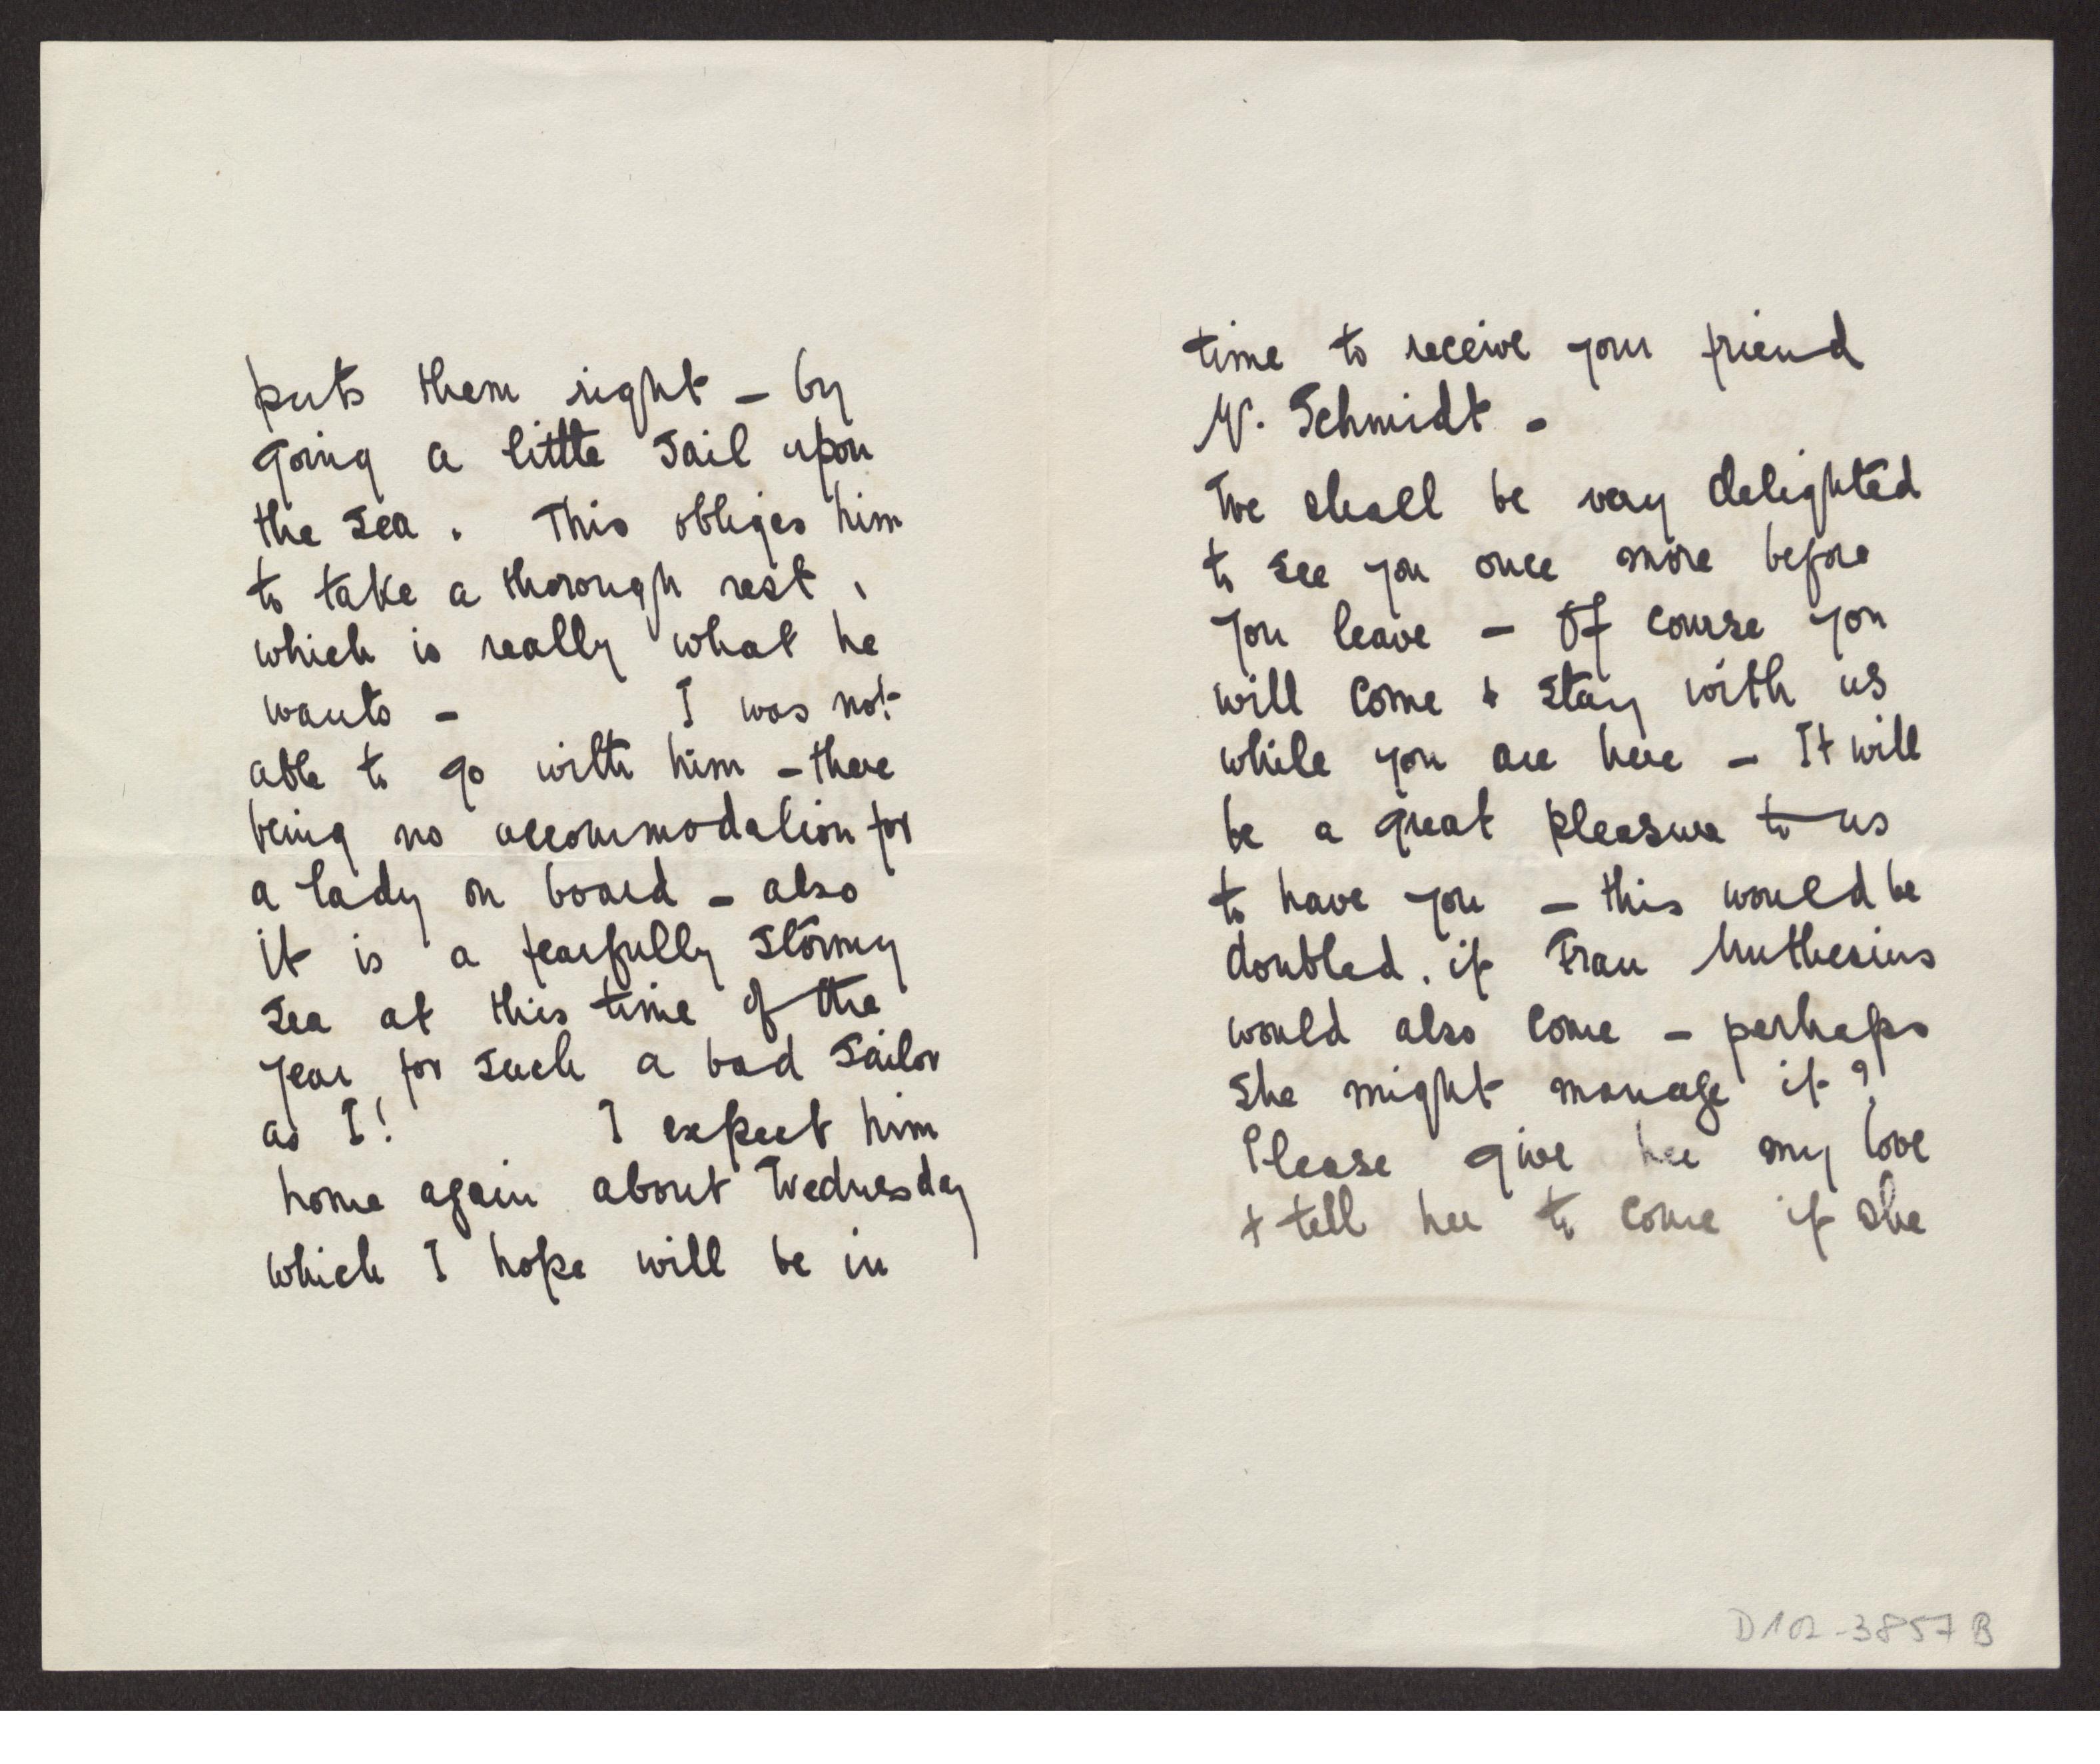 puts them right - by
going a little sail upon
the sea. This obliges him
to take a thorough rest,
which is really what he
wants - I was not
able to go with him - there
being no accommodation for
a lady on board - also
it is a fearfully stormy
sea at this time of the
year for such a bad sailor
as I! I expect him
home again about Wednesday
which I hope will be in
time to receive your friend
Mr. Schmidt -
We shall be very delighted
to see you once more before
you leave - Of course you
will come + stay with us
while you are here - It will
be a great pleasure to us
to have you - this would be
doubled. if Frau Muthesius
would also come - perhaps
she might manage it?
Please give her my love
+ tell her to come if she
D102-3857 B